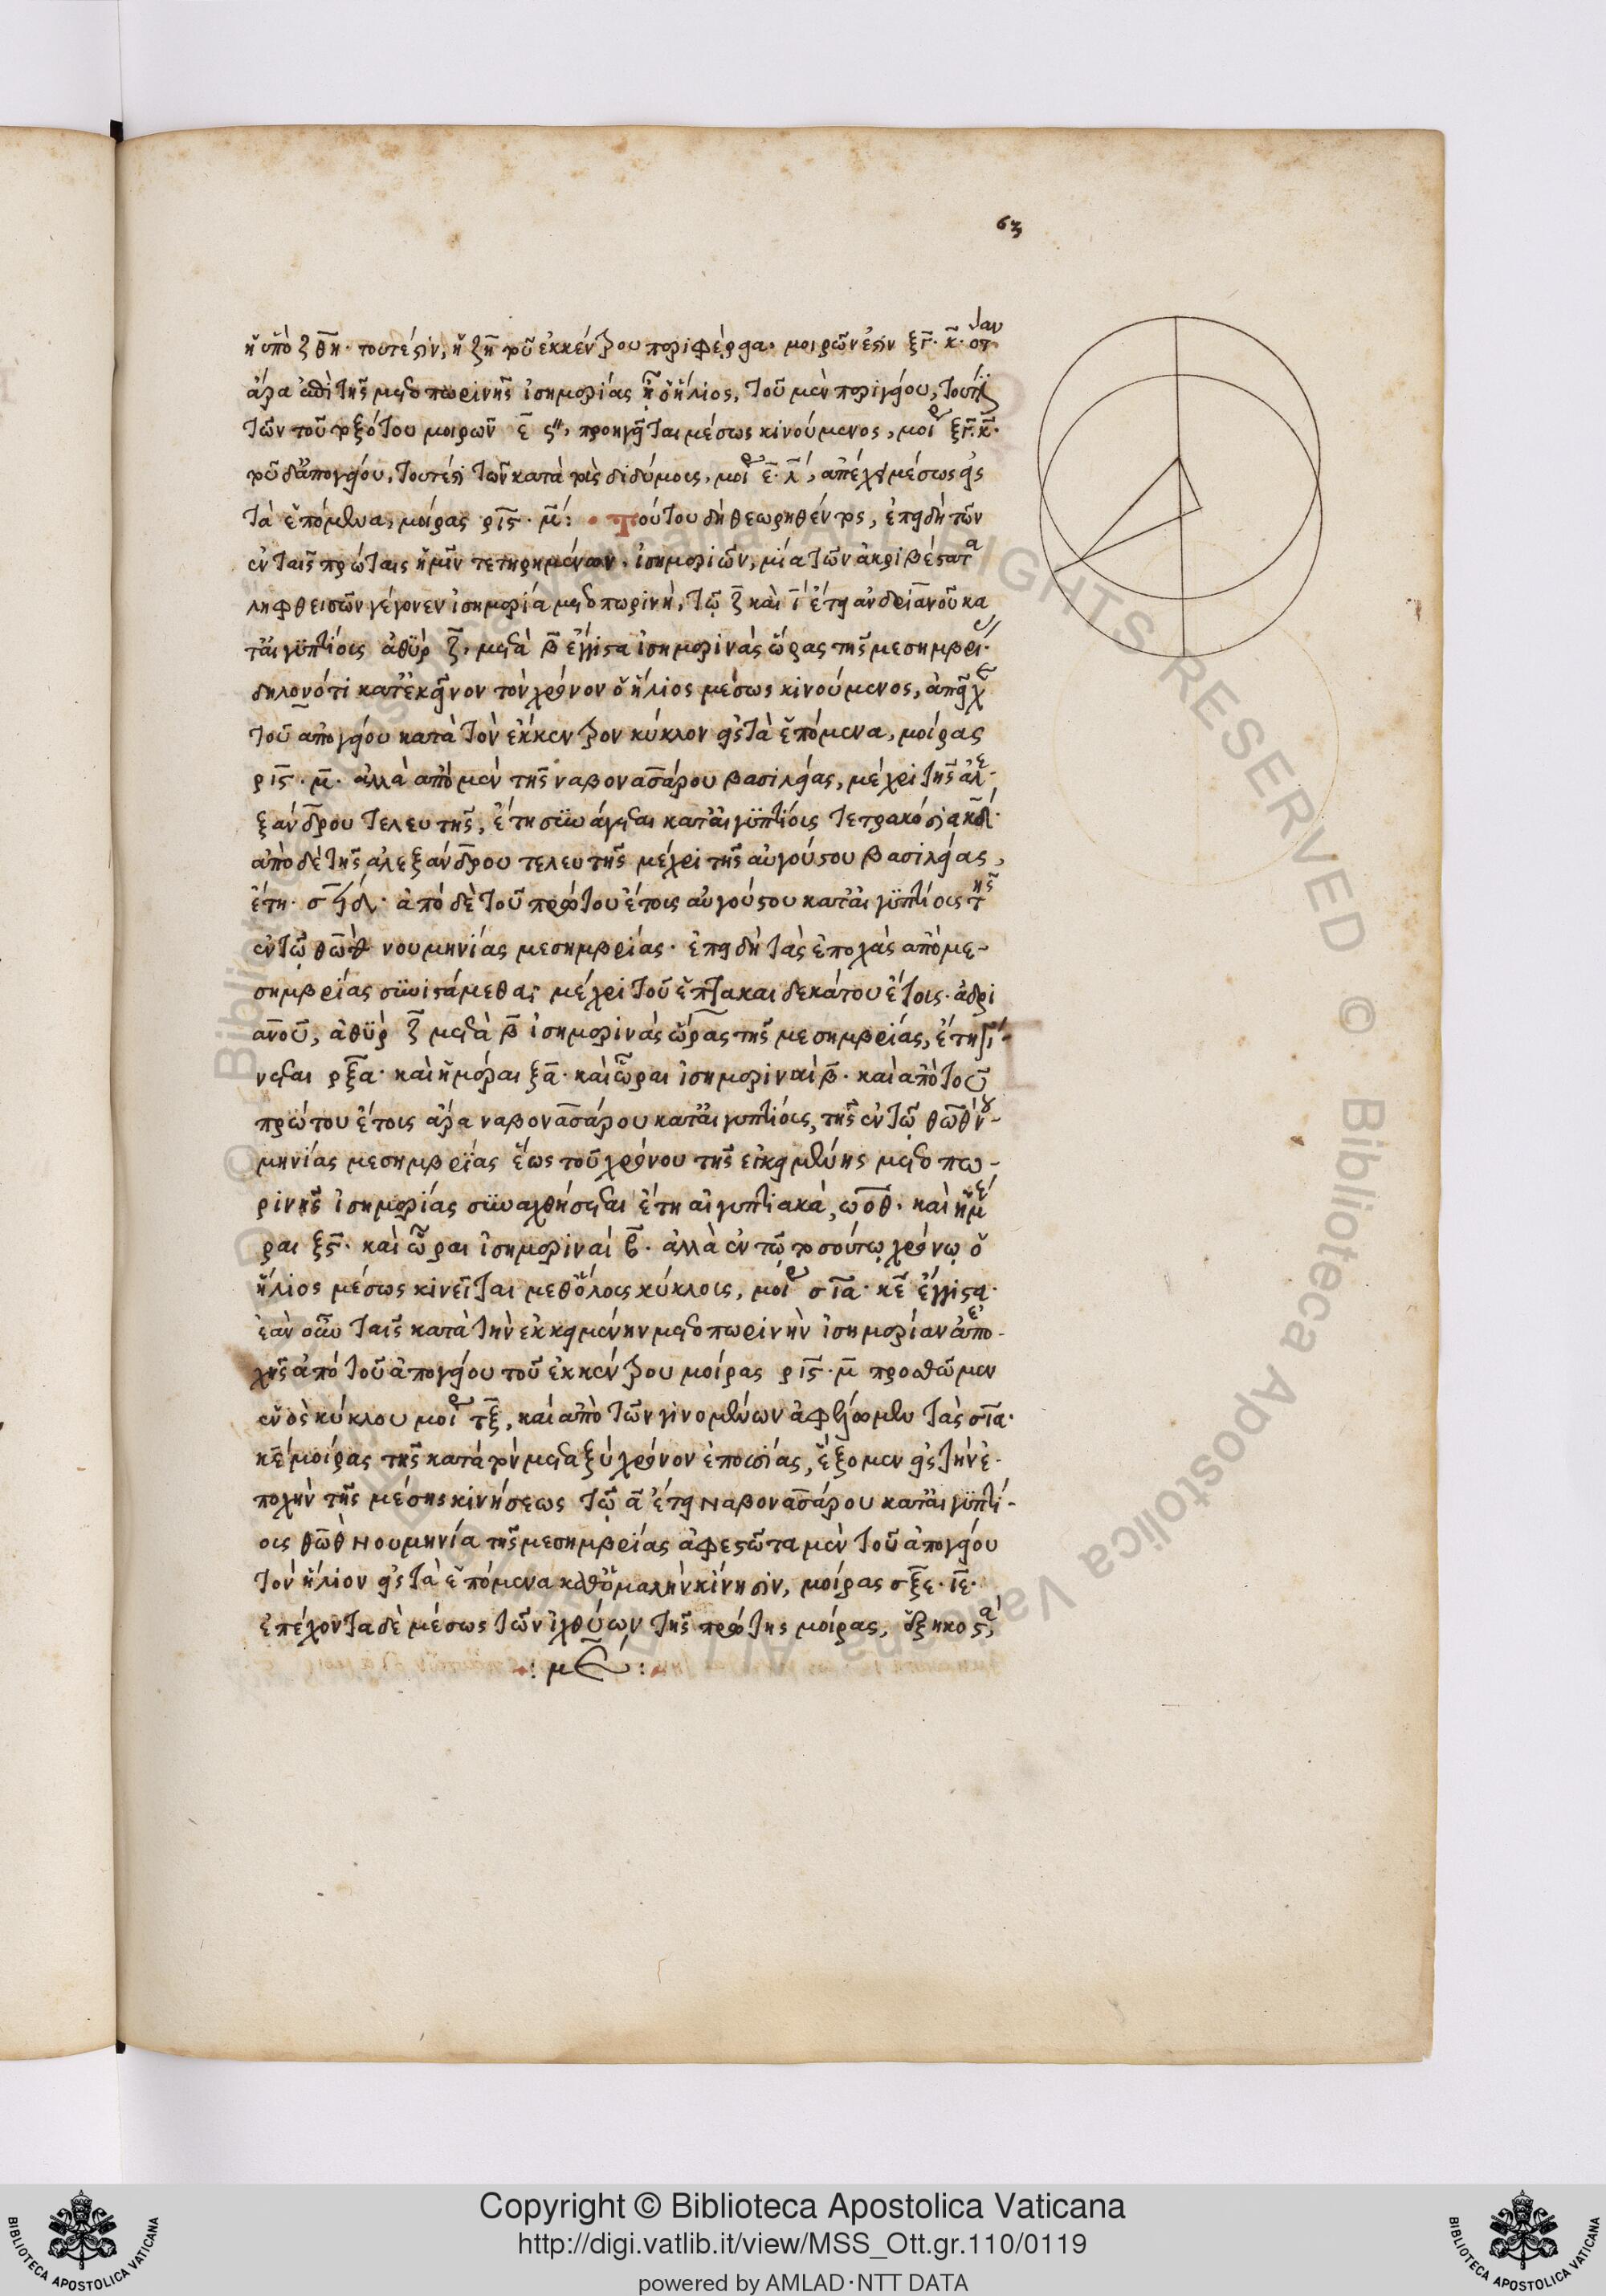 63
ἡ ὑπὸ ζθη· τουτέστιν, ἡ ζη τοῦ ἐκκέντρου περιφέρεια· μοιρῶν ἐστιν ξγ· κ· ὅταν
ἄρα ἐπὶ τῆς μετοπωρινῆς ἰσημερίας ᾖ ὁ ἥλιος, τοῦ μὲν περιγείου, τουτέστι
τῶν τοῦ τοξότου μοιρῶν ε ςʹʹ, προηγεῖται μέσως κινούμενος, μοί ξγ. κ·
τοῦ δ' ἀπογείου, τουτέστι τῶν κατὰ τοὺς διδύμους, μοί ε· λ, ἀπέχει μέσως εἰς
τὰ ἑπόμενα, μοίρας ρις· μ: • Τούτου δὴ θεωρηθέντος, ἐπειδὴ τῶν
ἐν ταῖς πρώταις ἡμῖν τετηρημένων ἰσημεριῶν, μία τῶν ἀκριβέστατα
ληφθεισῶν γέγονεν ἰσημερία μετοπωρινὴ, τῷ ζ καὶ ι ἔτει ἀνδριανοῦ κα
τ' αἰγυπτίους ἀθὺρ ζ, μετὰ β ἔγγιστα ἰσημερινὰς ὥρας τῆς μεσημβρί·
δηλονότι κατ' ἐκεῖνον τὸν χρόνον ὁ ἥλιος μέσως κινούμενος, ἀπεῖχε
τοῦ ἀπογείου κατὰ τὸν ἔκκεντρον κύκλον εἰς τὰ ἑπόμενα, μοίρας
ρις· μ· ἀλλὰ ἀπὸ μὲν τῆς ναβονασάρου βασιλείας, μέχρι τῆς ἀλε-
ξάνδρου τελευτῆς, ἔτη συνάγεται κατ' αἰγυπτίους τετρακόσια κδ·
ἀπὸ δὲ τῆς ἀλεξάνδρου τελευτῆς μέχρι τῆς αὐγούστου βασιλείας,
ἔτη· σϟδ· ἀπὸ δὲ τοῦ πρώτου ἔτους αὐγούστου κατ' αἰγυπτίους τῆς
ἐν τῷ θὼθ νουμηνίας μεσημβρίας· ἐπειδὴ τὰς ἐποχὰς ἀπὸ με-
σημβρίας συνιστάμεθα, μέχρι τοῦ ἑπτακαιδεκάτου ἔτους· ἀδρι
ανοῦ, ἀθὺρ ζ μετὰ β ἰσημερινὰς ὥρας τῆς μεσημβρίας, ἔτη γί-
νεται ρξα· καὶ ἡμέραι ξα· καὶ ὧραι ἰσημεριναὶ β· καὶ ἀπὸ τοῦ
πρώτου ἔτους ἄρα ναβονασάρου κατ' αἰγυπτίους, τῆς ἐν τῷ θὼθ νου-
μηνίας μεσημβρίας ἕως τοῦ χρόνου τῆς ἐκκειμένης μετοπω-
ρινῆς ἰσημερίας συναχθήσεται ἔτη αἰγυπτιακὰ, ωοθ· καὶ ἡμέ
ραι ξς· καὶ ὧραι ἰσημεριναὶ β· ἀλλὰ ἐν τῷ τοσούτῳ χρόνῳ ὁ
ἥλιος μέσως κινεῖται μεθ' ὅλους κύκλους, μοί σια· κε ἔγγιστα·
ἐὰν οὖν ταῖς κατὰ τὴν ἐκκειμένην μετοπωρινὴν ἰσημερίαν ἀπο-
χῆς ἀπὸ τοῦ ἀπογείου τοῦ ἐκκέντρου μοίρας ρις· μ προσθῶμεν
ἑνὸς κύκλου μοί τξ, καὶ ἀπὸ τῶν γινομένων ἀφέλωμεν τὰς σια·
κε μοίρας τῆς κατὰ τὸν μεταξὺ χρόνον ἐπουσίας, ἕξομεν εἰς τὴν ἐ-
ποχὴν τῆς μέσης κινήσεως τῷ α ἔτει Ναβονασάρου κατ' αἰγυπτί-
ους θὼθ Νουμηνία τῆς μεσημβρίας ἀφεστῶτα μὲν τοῦ ἀπογείου
τὸν ἥλιον εἰς τὰ ἑπόμενα καθ' ὁμαλὴν κίνησιν, μοίρας σξε· ιε·
ἐπέχοντα δὲ μέσως τῶν ἰχθύων τῆς πρώτης μοίρας, ἑξηκοστὰ
: με :
© Biblioteca Apostolica Vaticana ALL RIGHTS RESERVED © Biblioteca Apostolica Vaticana ALL RIGHTS RESERVED
Copyright © Biblioteca Apostolica Vaticana
http://digi.vatlib.it/view/MSS_Ott.gr.110/0119
powered by AMLAD·NTT DATA
BIBLIOTECA APOSTOLICA VATICANA
BIBLIOTECA APOSTOLICA VATICANA